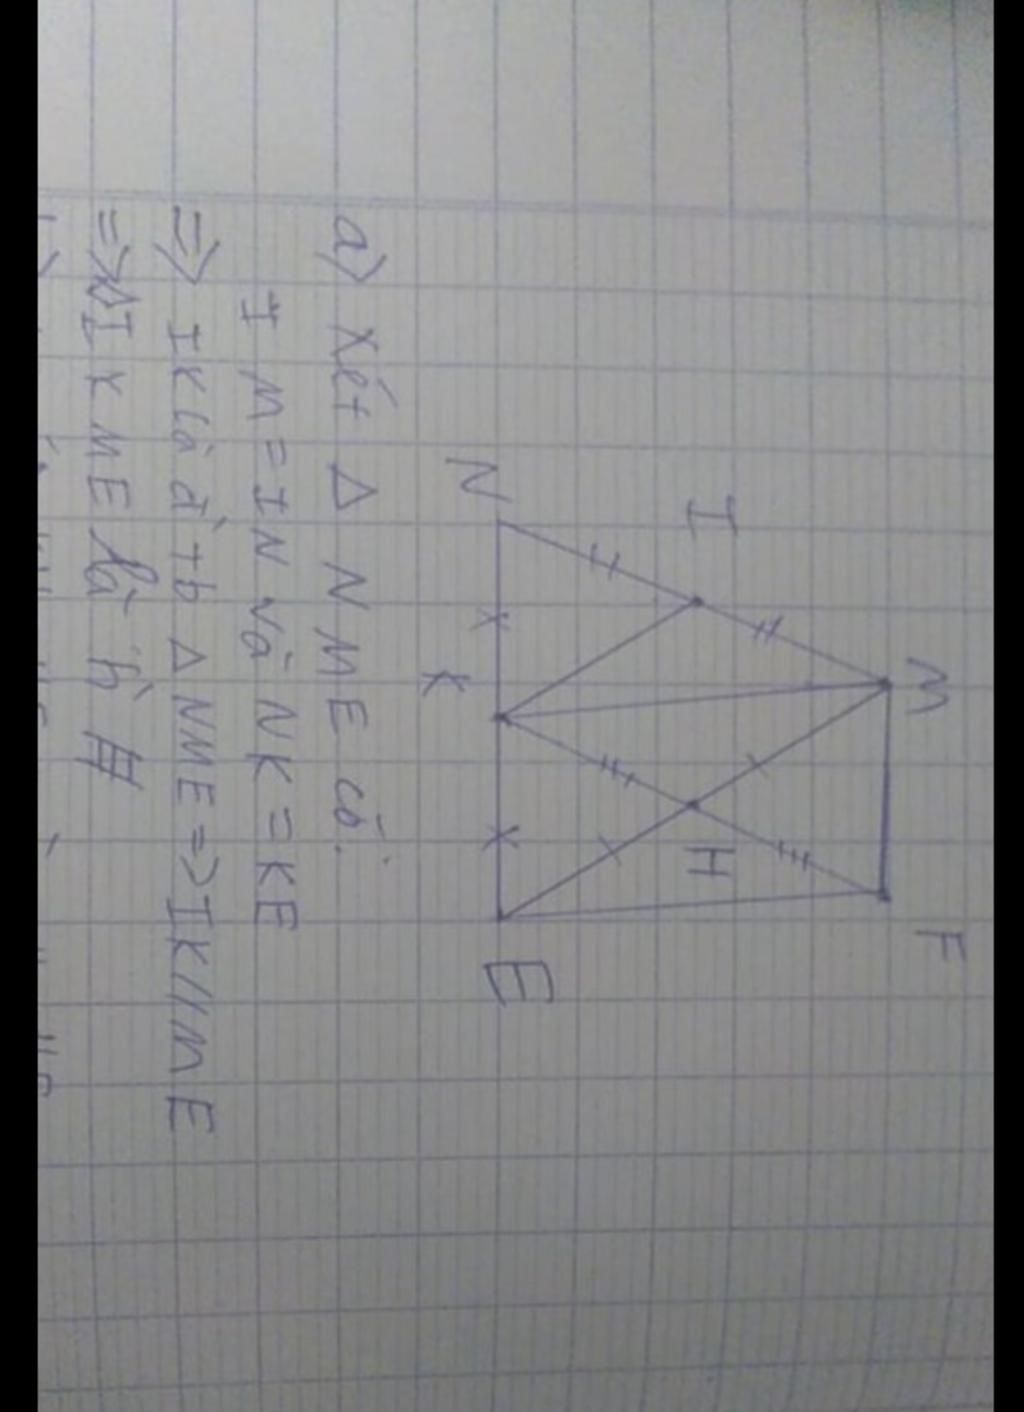 M
F
I
H
N
K
E
a) Xét Δ NME có:
IM = IN và NK = KE
=> IK là đtb Δ NME => IK // ME
=> IKME là h